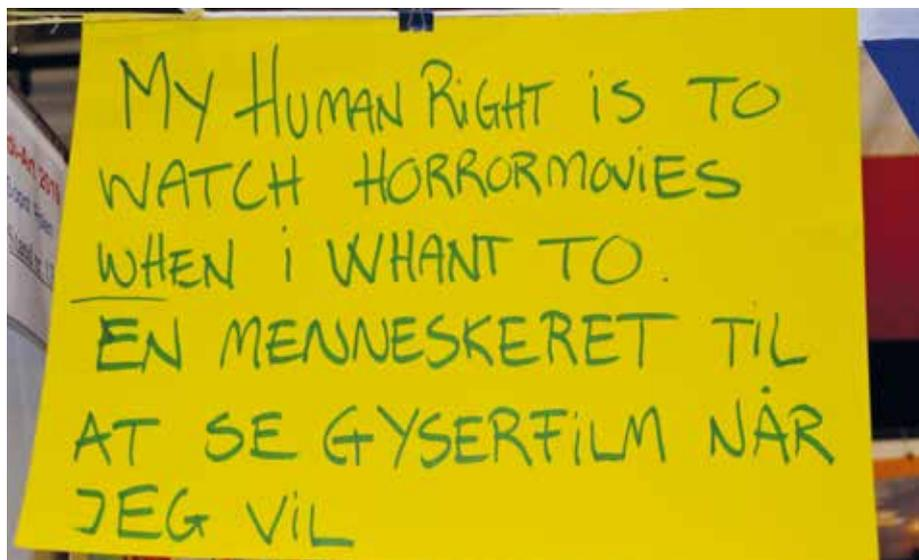 MY HUMAN RiGHT iS TO
WATCH HORRORMOViES
WHEN i WHANT TO.
EN MENNESKERET TiL
AT SE GYSERFiLM NÅR
JEG ViL